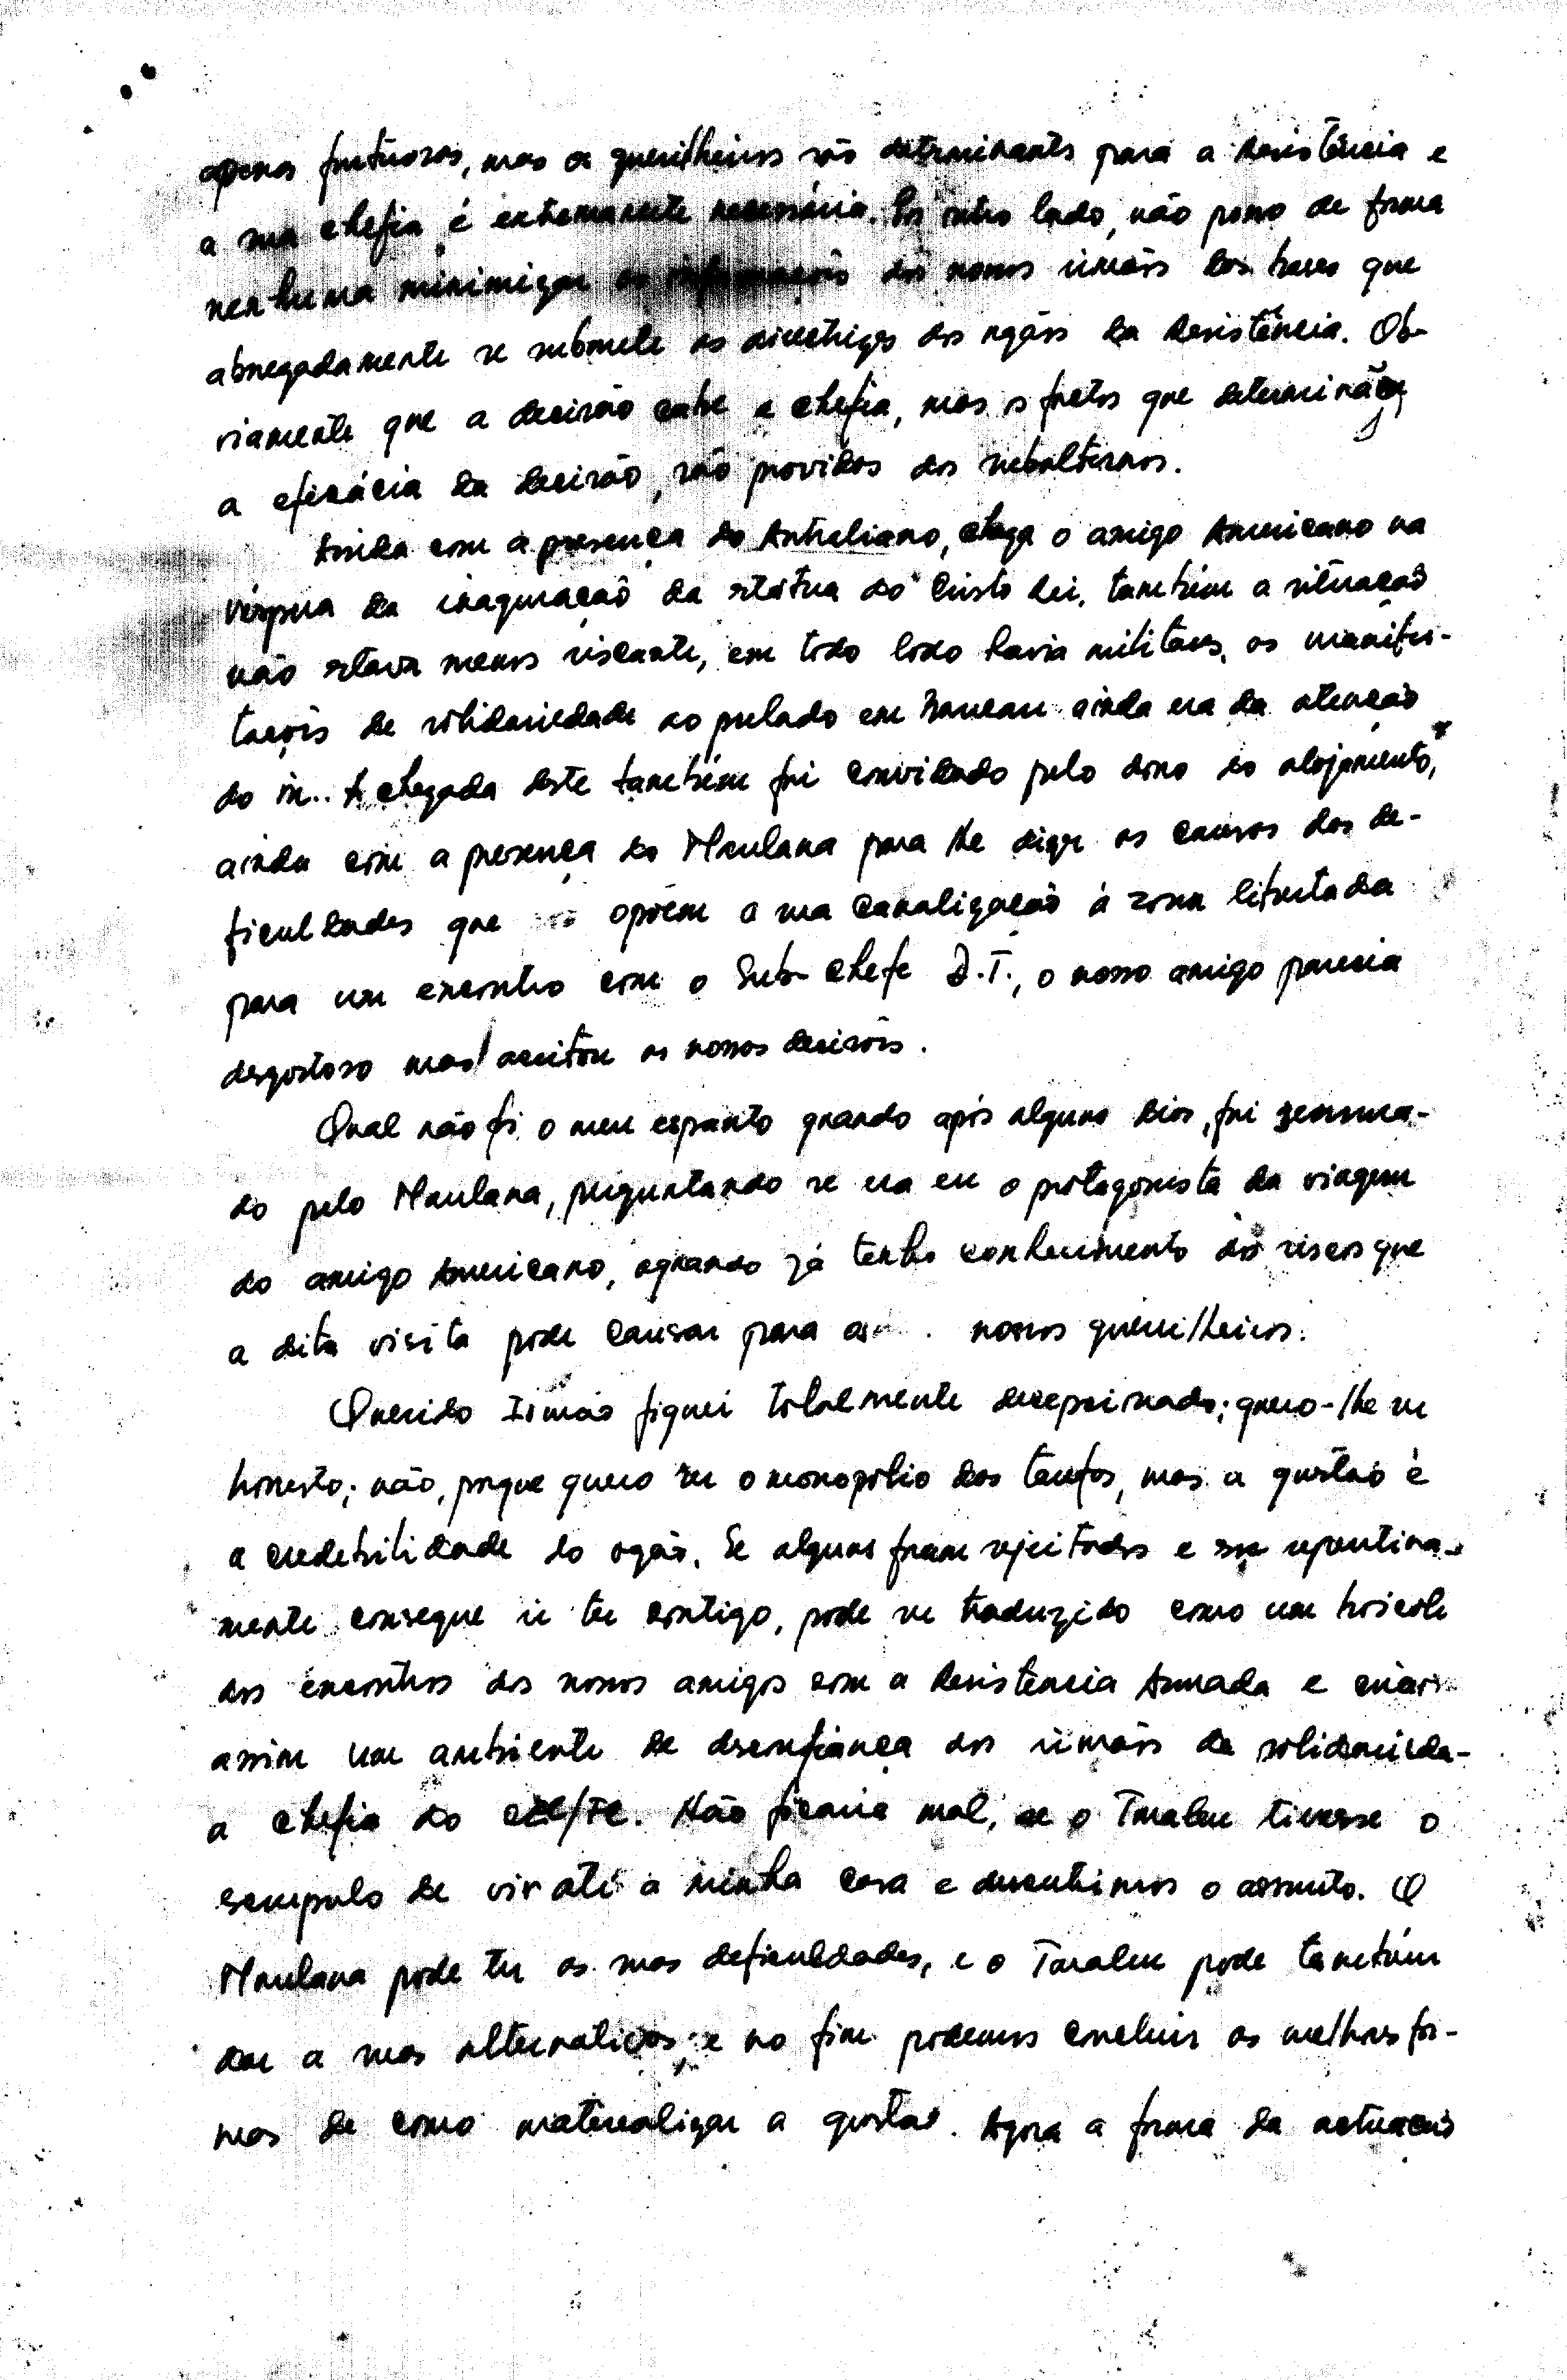 apenas frutuosas, mas os guerilheiros são determinantes para a Resistência e
a sua chefia é extremamente necessária. Por outro lado, não posso de forma
nenhuma minimizar as informações dos nossos irmãos das bases que
abnegadamente se submete as directrizes dos orgãos da Resistência. Ob-
viamente que a decisão cabe a chefia, mas os factos que determinão
a eficácia da decisão, são providos dos subalternos.
Ainda com a presença do Australiano, chega o amigo Americano na
véspera da inaguração da státua do Cristo Rei, também a situação
não estava menos riscante, em todo lado havia militares, as manifes-
tações de solidariedade ao prelado em ainda era da atenção
do in.. A chegada deste também fui convidado pelo dono do alojamento,
ainda com a presença do Maulana para lhe dizer as causas das de-
ficuldades que opõem a sua canalização à zona libertada
para um encontro com o Sub-chefe D.T., o nosso amigo parecia
desgostoso mas aceitou as nossas decisões.
Qual não foi o meu espanto quando após alguns dias, fui
do pelo Maulana, perguntando se era eu o protagonista da viagem
do amigo Americano, aquando já tenho conhecimento dos riscos que
a dita visita pode causar para os nossos guerilheiros.
Querido Irmão fiquei totalmente decepcionado; quero-lhe ser
honesto; não, porque quero ser o monopólio das tarefas, mas a questão é
a credebilidade do orgão. Se alguns foram rejeitados e repentina-
mente consegue ir ter contigo, pode ser traduzido como um boicote
dos encontros dos nossos amigos com a Resistência Armada e criar
assim um ambiente de desconfiança dos irmãos da solidarieda-
a chefia do CEL/FC. Não ficaria mal, se o Tmalen tivesse o
scrupulo de vir até a minha casa e discutirmos o assunto. O
Maulana pode ter as suas deficuldades, e o pode também
dar a suas alternativas e no fim podemos concluir as melhores for-
mas de como materealizar a questão. Agora a forma da actuação